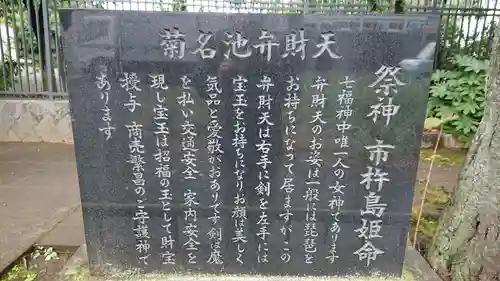 天財弁池名菊
祭神 市杵島姫命
七福神中唯一人の女神であります
弁財天のお姿は一般には琵琶を
お持ちになって居ますがこの
弁財天は右手に剣を左手には
宝玉をお持ちになりお顔は美しく
気品と愛敬がおありです剣は魔
を払い交通安全 家内安全を
現し宝玉は招福の玉として財宝
授与 商売繁昌のご守護神で
あります